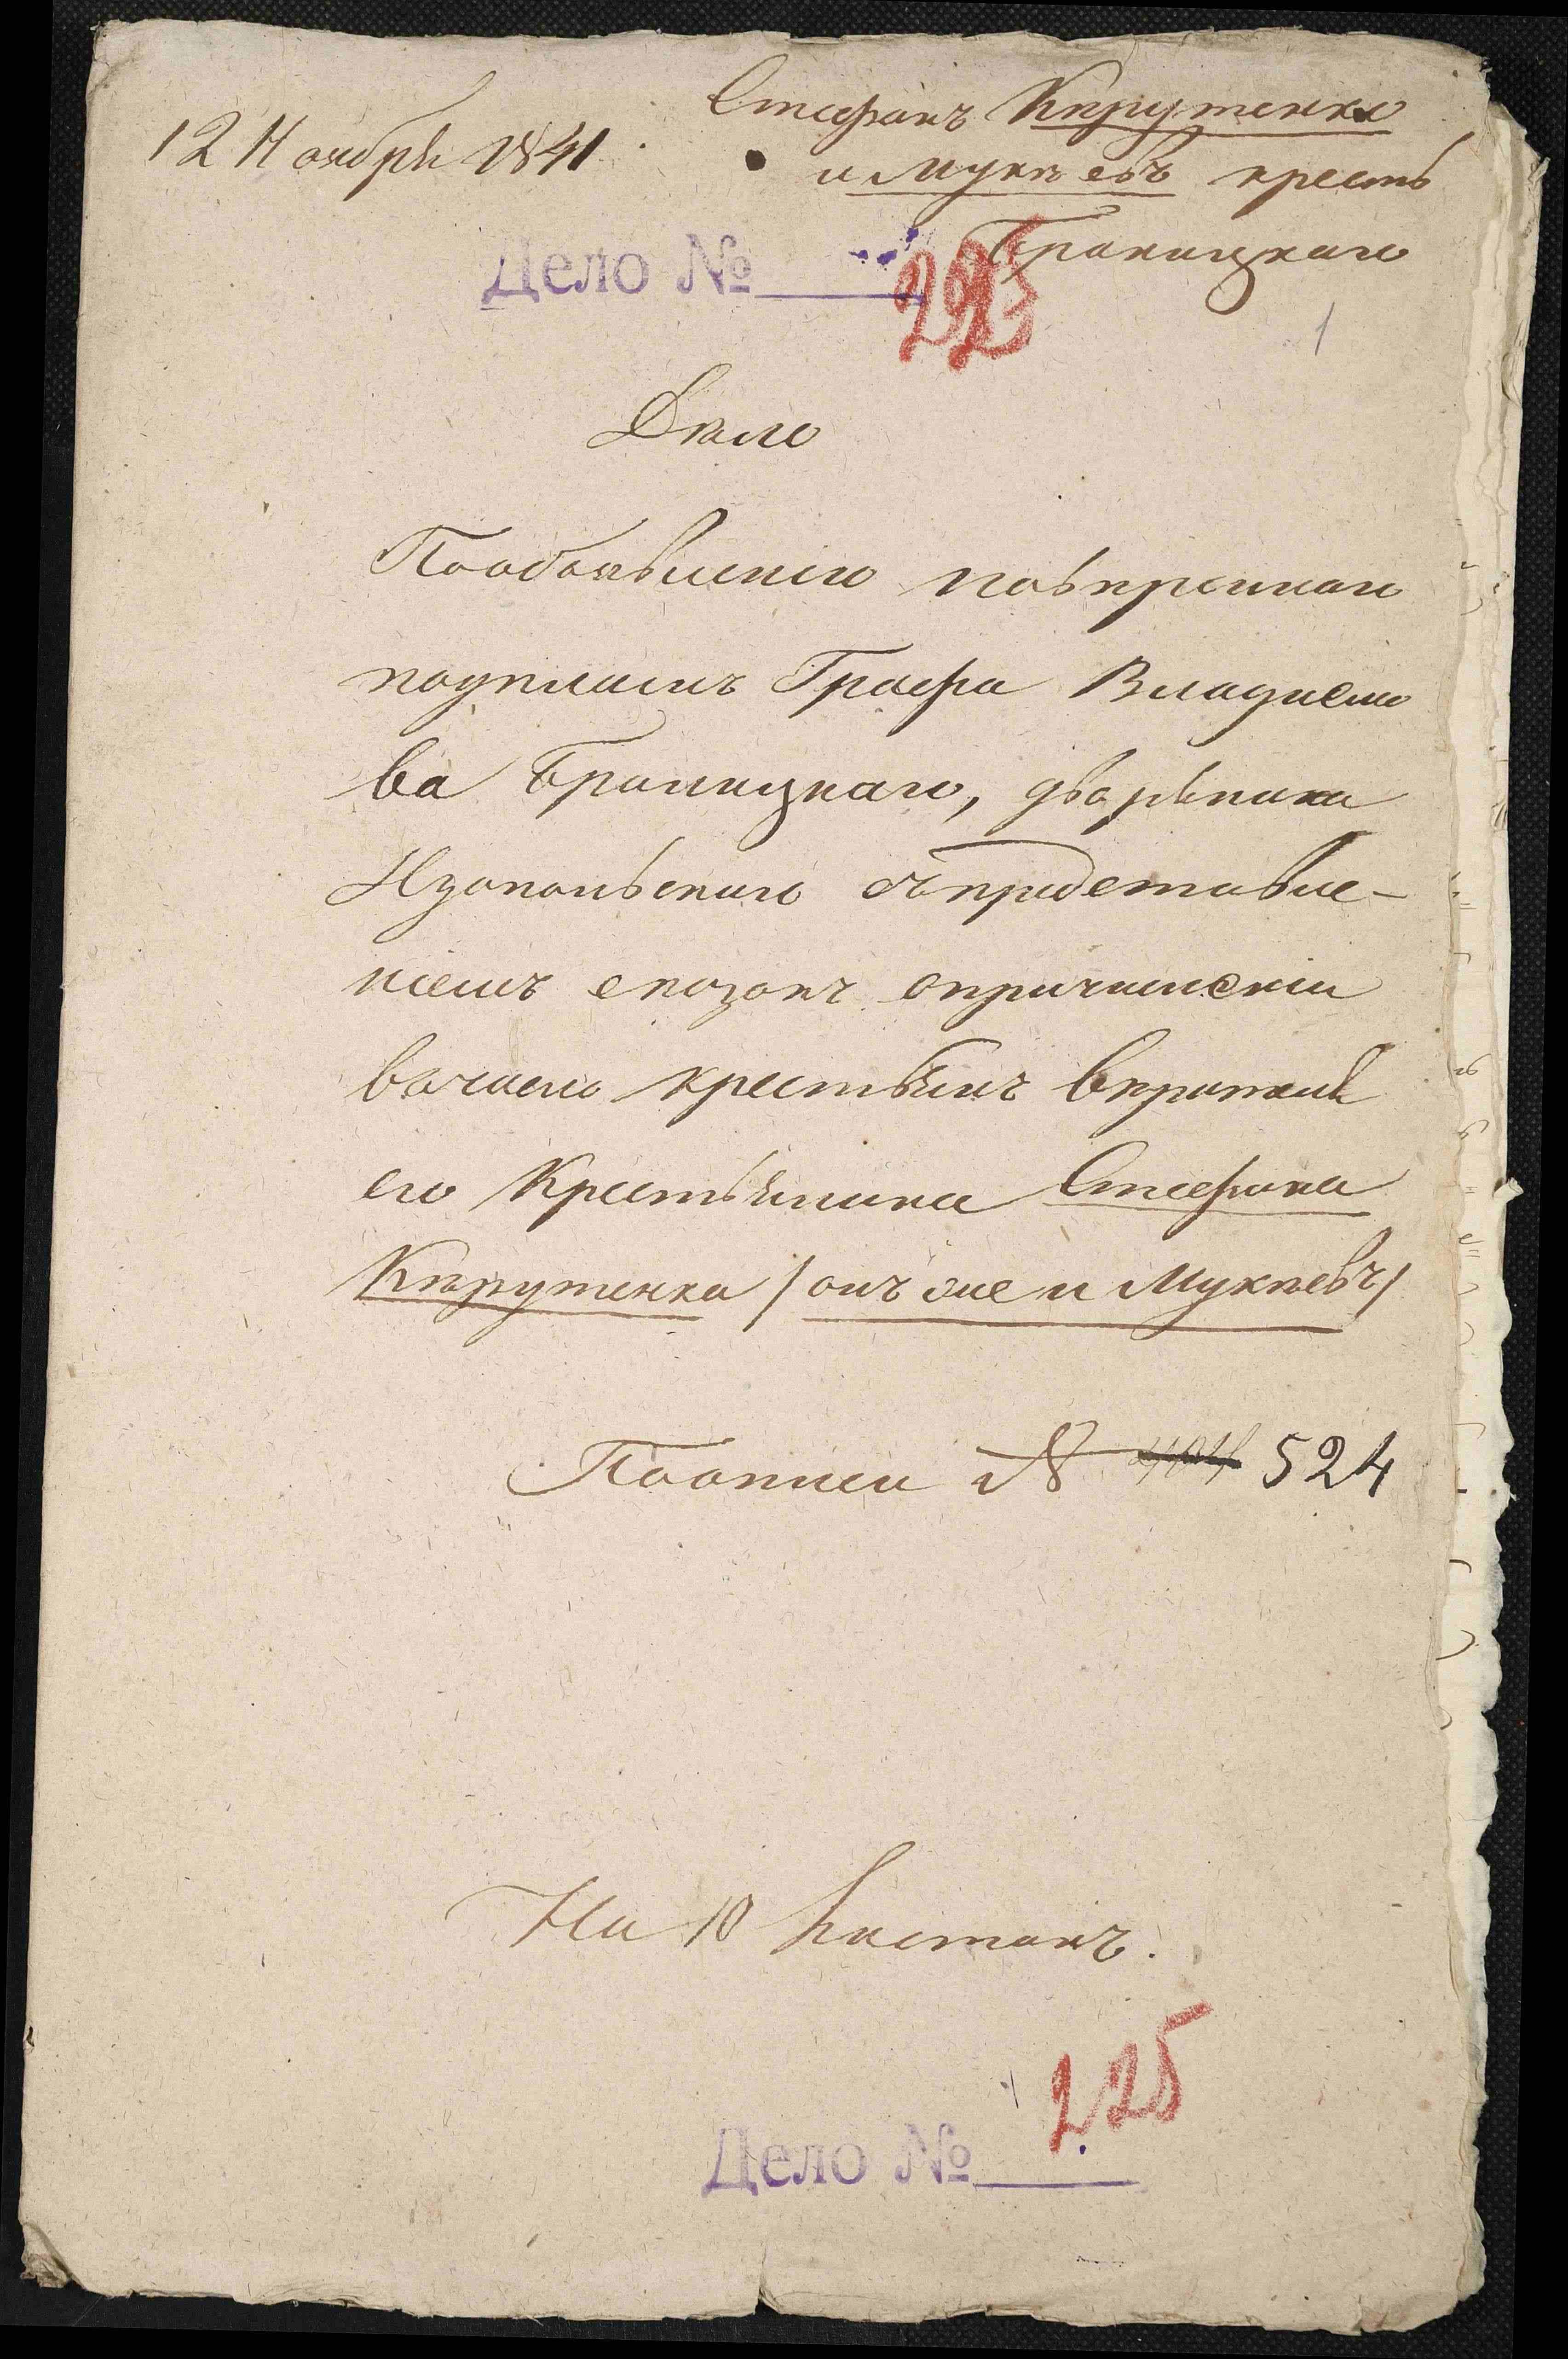 12 Ноября 1841
Стефанъ Кърутенко
и Мукѣевъ крестъ
Браницкаго
Дело № 225
1
Дѣло
Пообъявленію повѣреннаго
Графа Владисла
ва Браницкаго, дворянина
Изопольскаго съпредставле-
ніемъ сказокъ опричисленіи
вчисло крестьянъ
его Крестьянина Стефана
Кърутенка / онъ же и Мукѣевъ /
Поописи № 524
На 10 листахъ.
225
Дело №